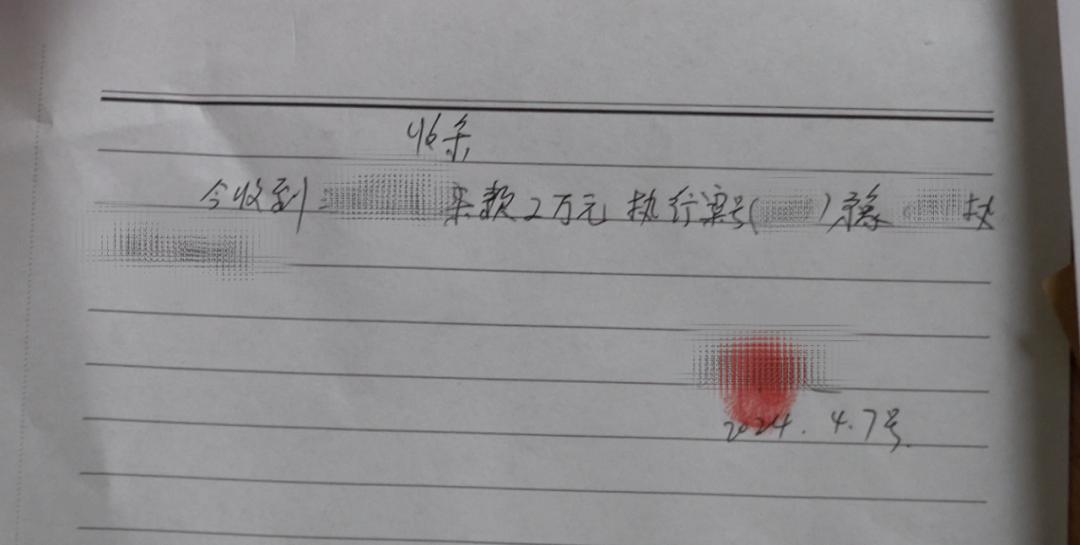 收条
今收到: 来款2万元 执行案号( )豫 执
2024.4.7号.